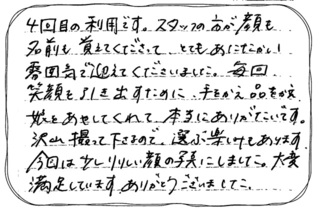 4回目の利用です。スタッフの方が顔も
名前も覚えてくださって、とてもあたたかい
雰囲気で迎えてくださいました。毎回
笑顔を引き出すために、手をかえ品をかえ
娘をあやしてくれて、本当にありがたいです。
沢山撮って下さるので、選ぶ楽しみもあります。
今回は少しりりしい顔の写真にしました。大変
満足しています。ありがとうございました。